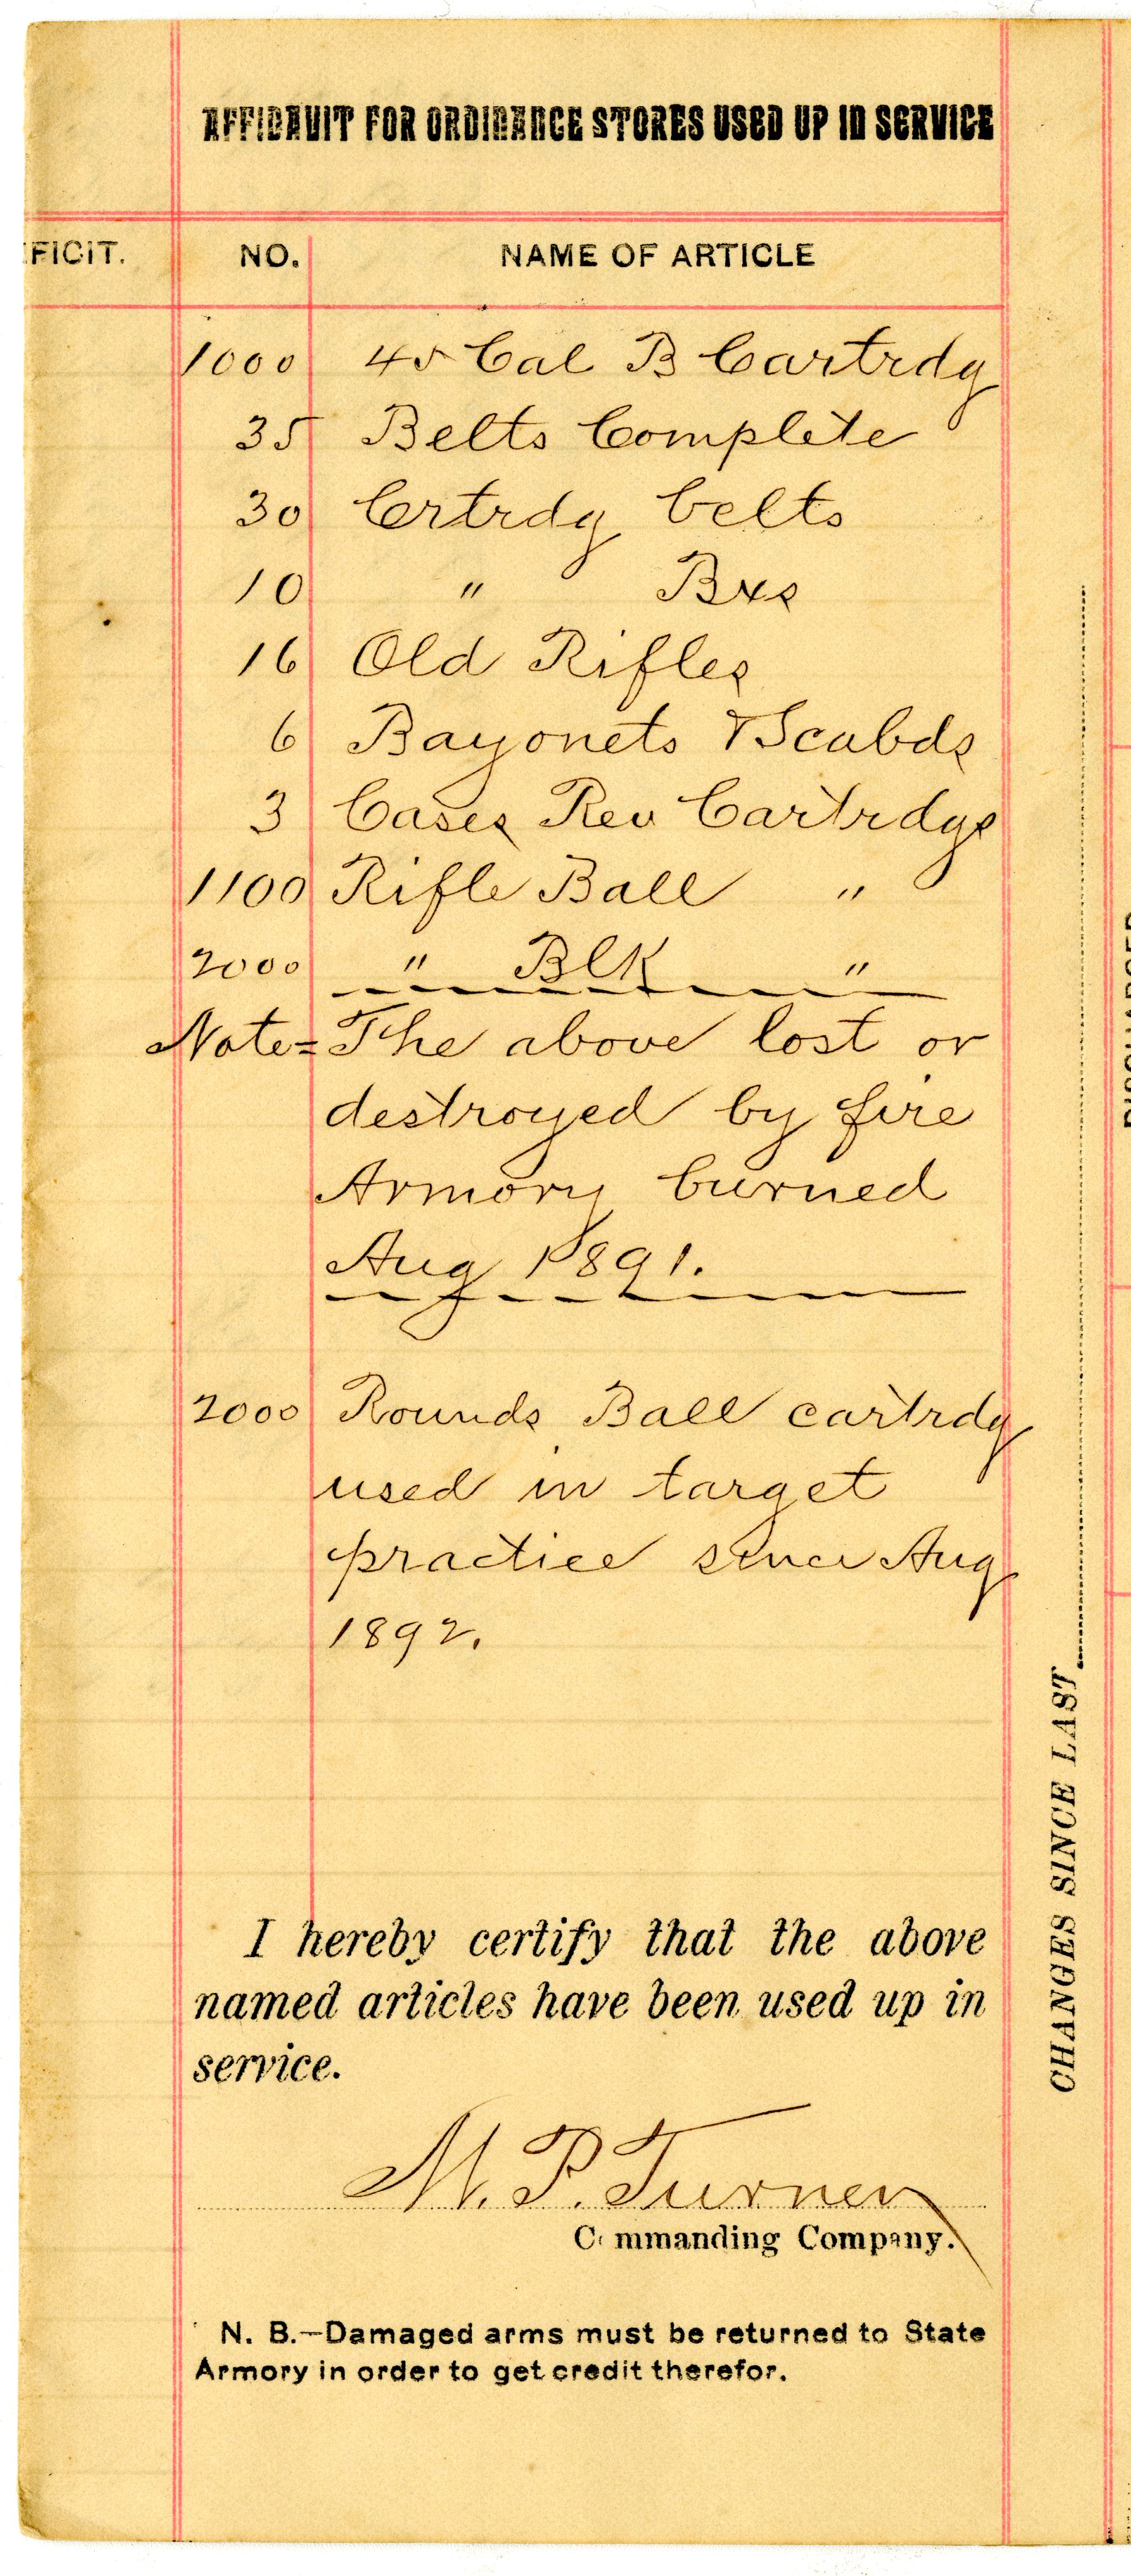 AFFIDAVIT FOR ORDINANCE STORES USED UP IN SERVICE
FICIT.
NO.
NAME OF ARTICLE
1000 45 Cal B Cartrdg
35 Belts Complete
30 Crtrdg belts
10 " Bxs
16 Old Rifles
6 Bayonets & Scabds
3 Cases Rev Cartrdgs
1100 Rifle Ball "
2000 " Blk "
Note= The above lost or
destroyed by fire
Armory burned
Aug 1891.
2000 Rounds Ball cartrdg
used in target
practice since Aug
1892.
I hereby certify that the above
named articles have been used up in
service.
M. P. Turner
Commanding Company.
N. B.—Damaged arms must be returned to State
Armory in order to get credit therefor.
CHANGES SINCE LAST